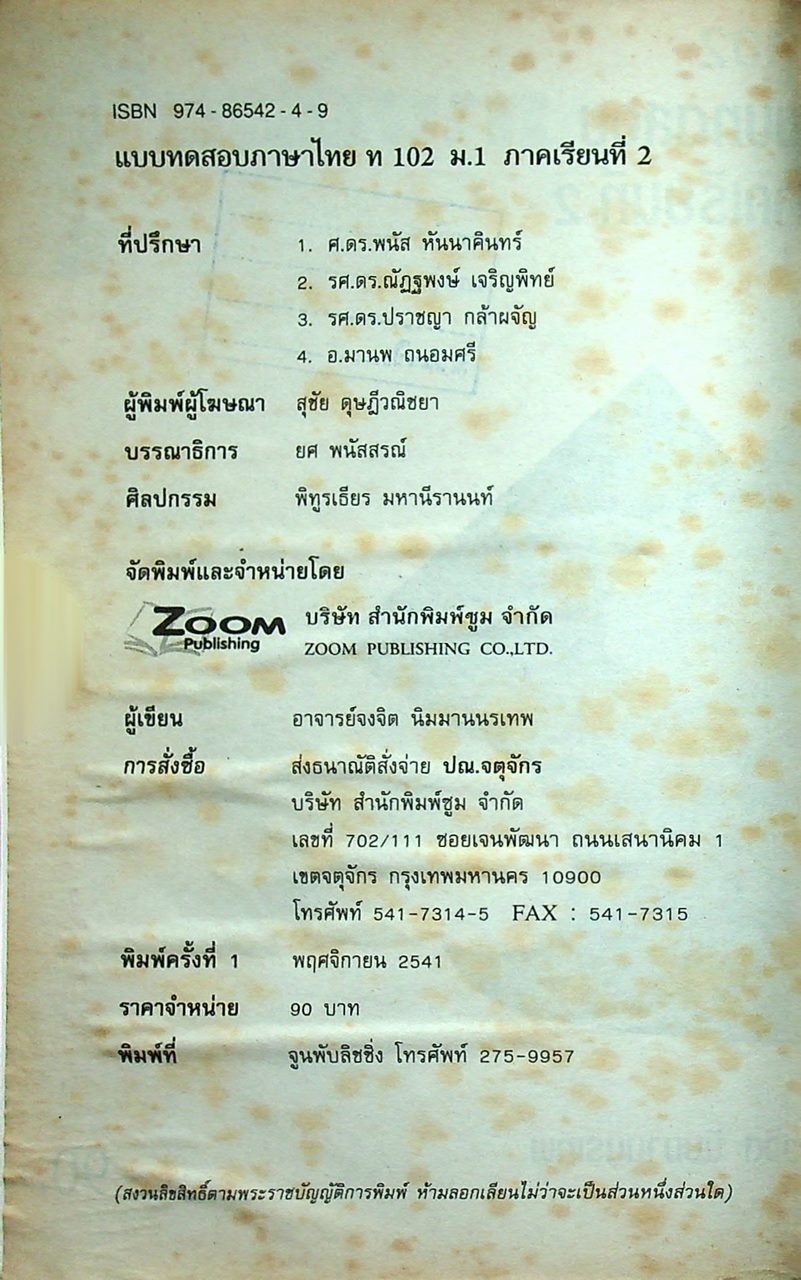 ISBN 974 - 86542 - 4 - 9
แบบทดสอบภาษาไทย ท 102 ม.1 ภาคเรียนที่ 2
ที่ปรึกษา 1. ศ.ดร.พนัส หันนาคินทร์
2. รศ.ดร.ณัฏฐพงษ์ เจริญพิทย์
3. รศ.ดร.ปราชญา กล้าผจัญ
4. อ.มานพ ถนอมศรี
ผู้พิมพ์ผู้โฆษณา สุชัย ดุษฎีวณิชยา
บรรณาธิการ ยศ พนัสสรณ์
ศิลปกรรม พิทูรเธียร มหานีรานนท์
จัดพิมพ์และจำหน่ายโดย
ZOOM บริษัท สำนักพิมพ์ซูม จำกัด
Publishing ZOOM PUBLISHING CO.,LTD.
ผู้เขียน อาจารย์จงจิต นิมมานนรเทพ
การสั่งซื้อ ส่งธนาณัติสั่งจ่าย ปณ.จตุจักร
บริษัท สำนักพิมพ์ซูม จำกัด
เลขที่ 702/111 ซอยเจนพัฒนา ถนนเสนานิคม 1
เขตจตุจักร กรุงเทพมหานคร 10900
โทรศัพท์ 541-7314-5 FAX : 541-7315
พิมพ์ครั้งที่ 1 พฤศจิกายน 2541
ราคาจำหน่าย 90 บาท
พิมพ์ที่ จูนพับลิชชิ่ง โทรศัพท์ 275-9957
(สงวนลิขสิทธิ์ตามพระราชบัญญัติการพิมพ์ ห้ามลอกเลียนไม่ว่าจะเป็นส่วนหนึ่งส่วนใด)